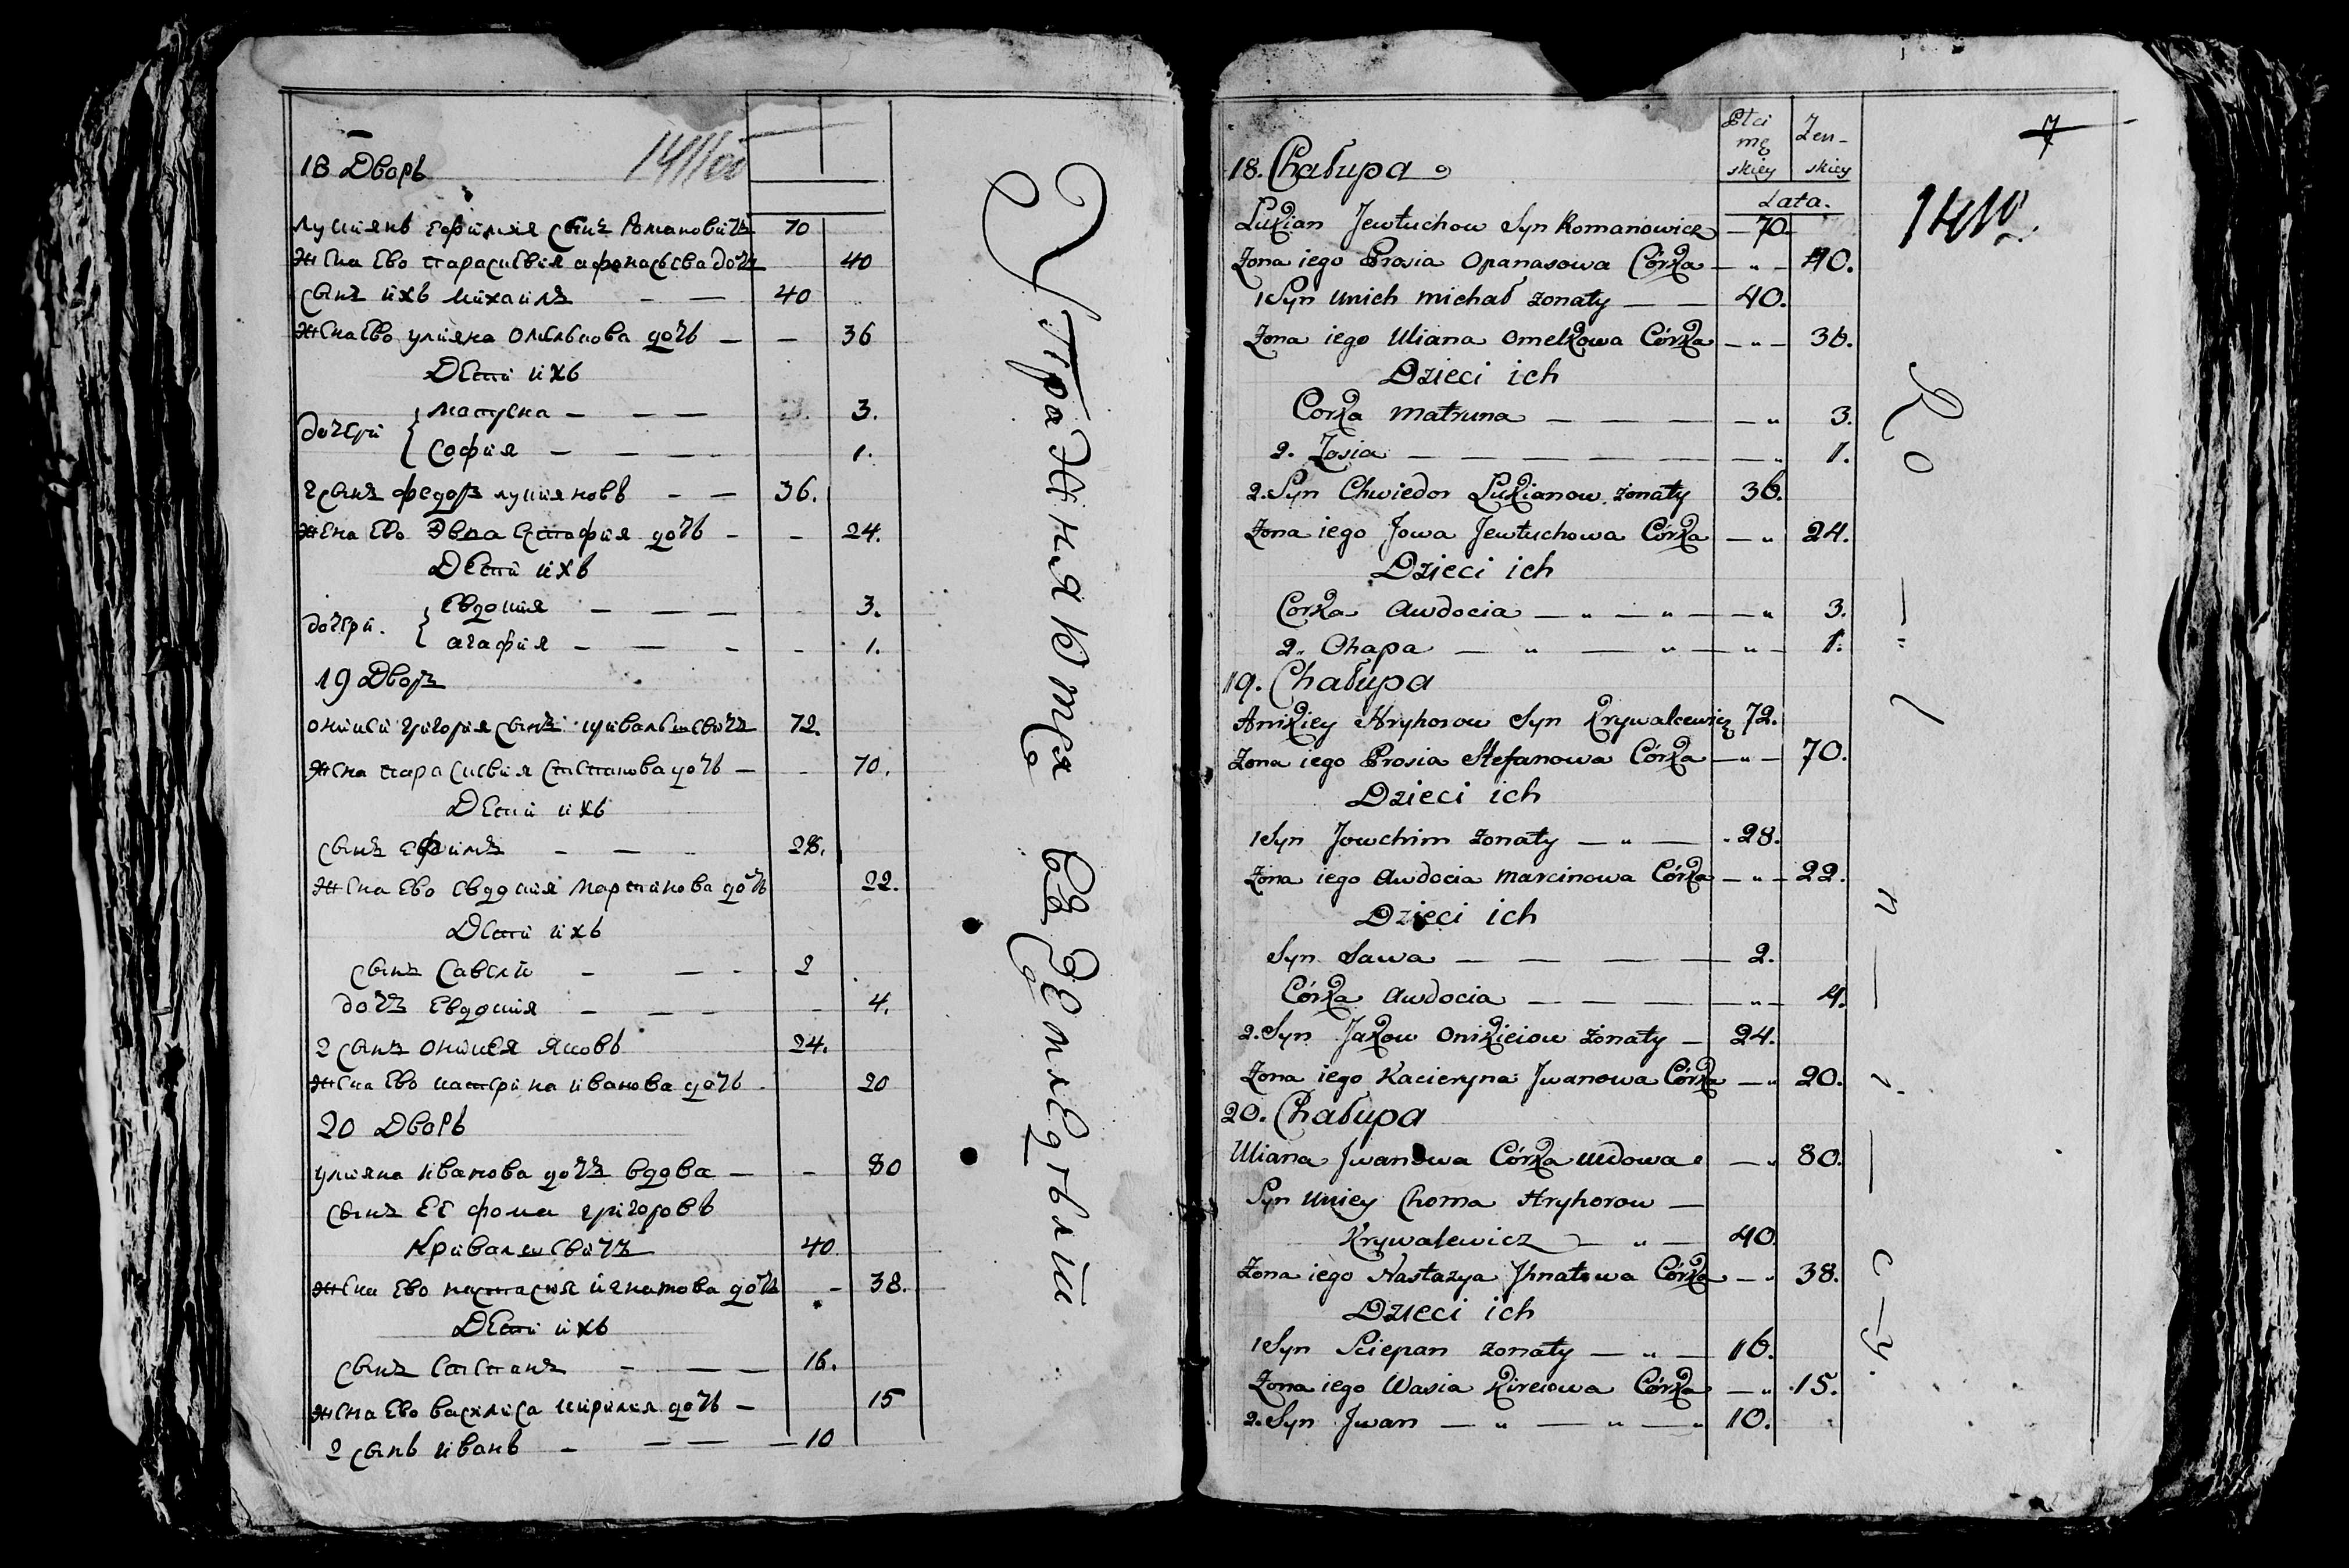 18 Дворъ
лукіянъ ефимія сынъ Романовичъ 70
жена ево парасиевія афонасьева дочь 40
сынъ ихъ михаилъ — — 40
жена ево уліяна омелькова дочь — — 36
Дети ихъ
дочери { матрена — — — 3.
софія — — — — 1.
2 сынъ федоръ лукіяновъ — — 36.
жена ево Эва дочь — — 24.
Дети ихъ
дочери. { евдокия — — — — 3.
агафия — — — — 1.
19 Дворъ
оникей григорія сынъ кривальцевичъ 72.
жена парасиевия степанова дочь — — 70.
Дети ихъ
сынъ ефимъ — — — 28.
жена ево евдокия мартинова дочь 22.
Дети ихъ
сынъ Савели — — — 2
дочь евдокия — — — — 4.
2 сынъ оникея яковъ 24.
жена ево катерина иванова дочь 20
20 Дворъ
улияна иванова дочь вдова — — 80
сынъ ее фома григоровъ
Кривалцевичъ 40
жена ево настасия игнатова дочь — 38.
Дети ихъ
сынъ степанъ — — — 16.
жена ево василиса кирилия дочь — 15
2 сынъ иванъ — — — — 10
Упражнияютца въ Земледѣлии
7
1410
18. Chałupa
Płci mę skiey
Żeń- skiey
Lata.
Lukian Jewtuchow Syn Romanowicz — 70
Żona iego Prosia Opanasowa Córka — „ — 40.
1 Syn unich michał żonaty — — 40.
Żona iego Uliana omelkowa Córka — „ — 36.
Dzieci ich
Corka matruna — — — — „ 3.
2. Zosia — — — — — — — „ 1.
2. Syn Chwiedor Lukianow żonaty 36.
Żona iego Jowa Jewtuchowa Córka — „ 24.
Dzieci ich
Corka Awdocia — „ — „ — — „ 3.
2. Ohapa — „ — „ — „ — 1.
19. Chałupa
Anikiey Hryhorow Syn Krywalcewicz 72.
Żona iego Prosia Stefanowa Córka — „ — 70.
Dzieci ich
1 Syn Jowchim żonaty — „ — 28.
Żona iego Awdocia marcinowa Córka — „ — 22.
Dzieci ich
Syn Sawa — — — — 2.
Córka Awdocia — — — — „ — 4.
2. Syn Jakow Onikieiow żonaty — 24.
Żona iego Kacieryna Jwanowa Córka — „ 20.
20. Chałupa
Uliana Jwanowa Córka wdowa — „ 80.
Syn uniey Choma Hryhorow —
Krywalewicz — „ — 40.
Żona iego Nastazya Jhnatowa Córka — „ 38.
Dzieci ich
1 Syn Sciepan żonaty — „ — 16.
Żona iego Wasia Kireiowa Córka — „ 15.
2. Syn Jwan — „ — „ — „ 10.
Ro — l — n — i — c — y.